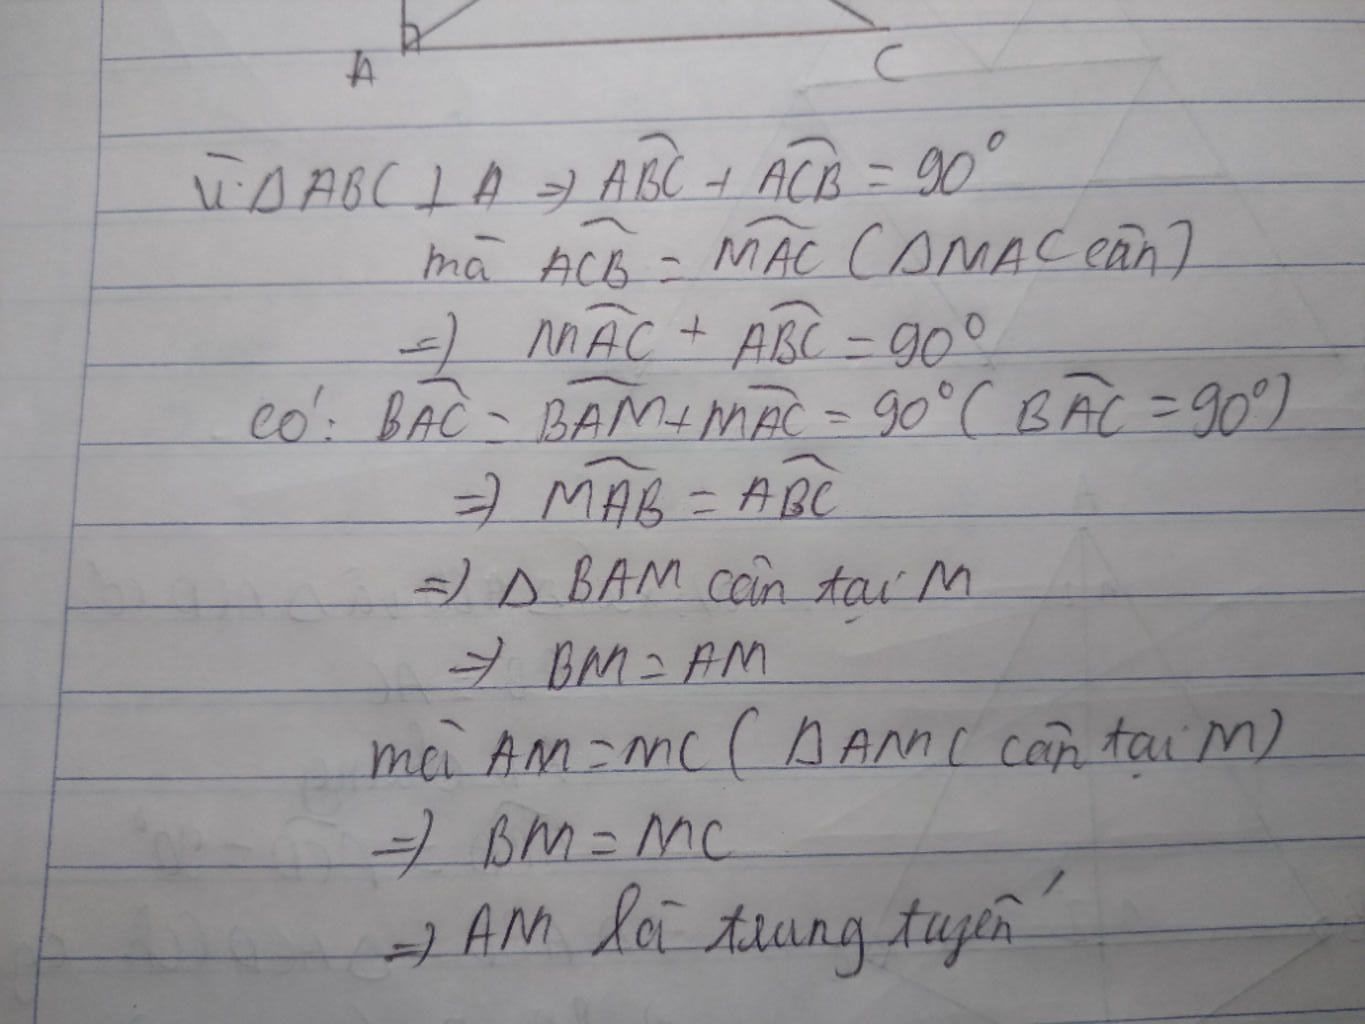 A C
vì ΔABC ⊥ A => \widehat{ABC} + \widehat{ACB} = 90°
mà \widehat{ACB} = \widehat{MAC} (ΔMAC cân)
=> \widehat{MAC} + \widehat{ABC} = 90°
có: \widehat{BAC} = \widehat{BAM} + \widehat{MAC} = 90° (\widehat{BAC} = 90°)
=> \widehat{MAB} = \widehat{ABC}
=> Δ BAM cân tại M
=> BM = AM
mà AM = MC (ΔAMC cân tại M)
=> BM = MC
=> AM là trung tuyến